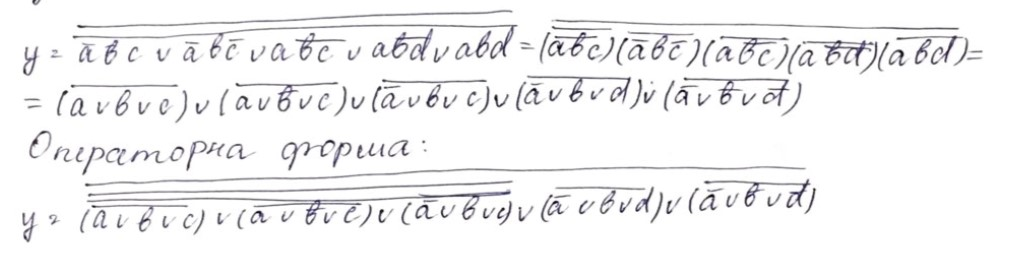 y = a̅ b c ∨ a̅ b c̅ ∨ a b̅ c̅ ∨ a b̅ d̅ ∨ a b d = (a̅ b c)(a̅ b c̅)(a b̅ c̅)(a b̅ d̅)(a b d) =
= (a ∨ b ∨ c) ∨ (a ∨ b̅ ∨ c) ∨ (a̅ ∨ b ∨ c) ∨ (a̅ ∨ b ∨ d) ∨ (a̅ ∨ b̅ ∨ d̅)
Операторна форма:
y = (a ∨ b ∨ c) ∨ (a ∨ b̅ ∨ c) ∨ (a̅ ∨ b ∨ c) ∨ (a̅ ∨ b ∨ d) ∨ (a̅ ∨ b̅ ∨ d̅)